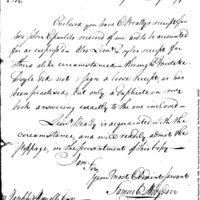 Enclosed you have C Beatty's receipt for
received of me and to be accounted
for as expressed. Also Lieut Doyles receipt for
three alike circumstanced
Doyle did not sign a loose receipt as has
been practised, but only a duplicate in my
book answering exactly to the one enclosed
Lieut Beatty is acquainted with the
circumstance, and will readily admit the
passage, on the presentment of this copy
I am Sir
Your most Obedient Servant
Samuel Hodgdon